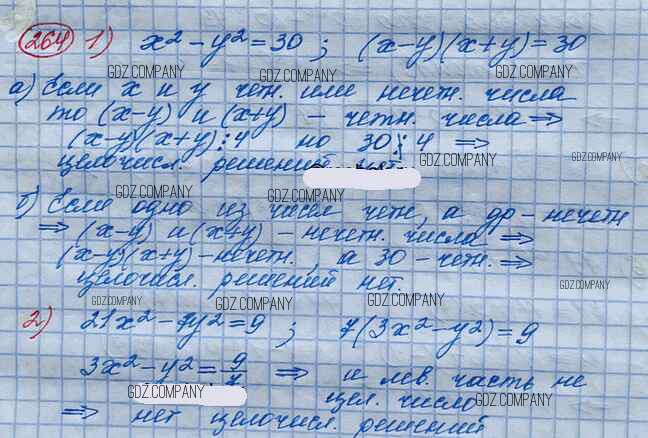 264 1) x² - y² = 30 ; (x-y)(x+y) = 30
GDZ.COMPANY GDZ.COMPANY GDZ.COMPANY
а) Если x и y четн. или нечетн. числа
GDZ.COMPANY GDZ.COMPANY
то (x-y) и (x+y) - четн. числа ⇒
(x-y)(x+y)⋮4 но 30⋮̸4 ⇒
целочисл. решений нет.
GDZ.COMPANY GDZ.COMPANY
GDZ.COMPANY GDZ.COMPANY
б) Если одно из чисел четн, а др - нечетн
⇒ (x-y) и (x+y) - нечетн. числа ⇒
GDZ.COMPANY GDZ.COMPANY
(x-y)(x+y) - нечетн., а 30 - четн. ⇒
целочисл. решений нет.
GDZ.COMPANY GDZ.COMPANY GDZ.COMPANY GDZ.COMPANY
2) 21x² - 7y² = 9 ; 7(3x² - y²) = 9
3x² - y² = 9/7 ⇒ и лев. часть не
цел. число
GDZ.COMPANY GDZ.COMPANY
⇒ нет целочисл. решений